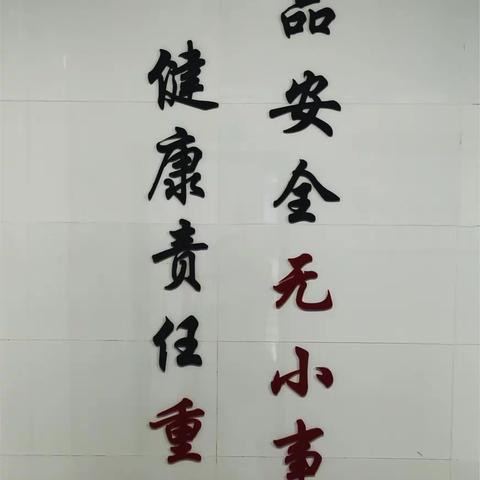 品安全无小事
健康责任重